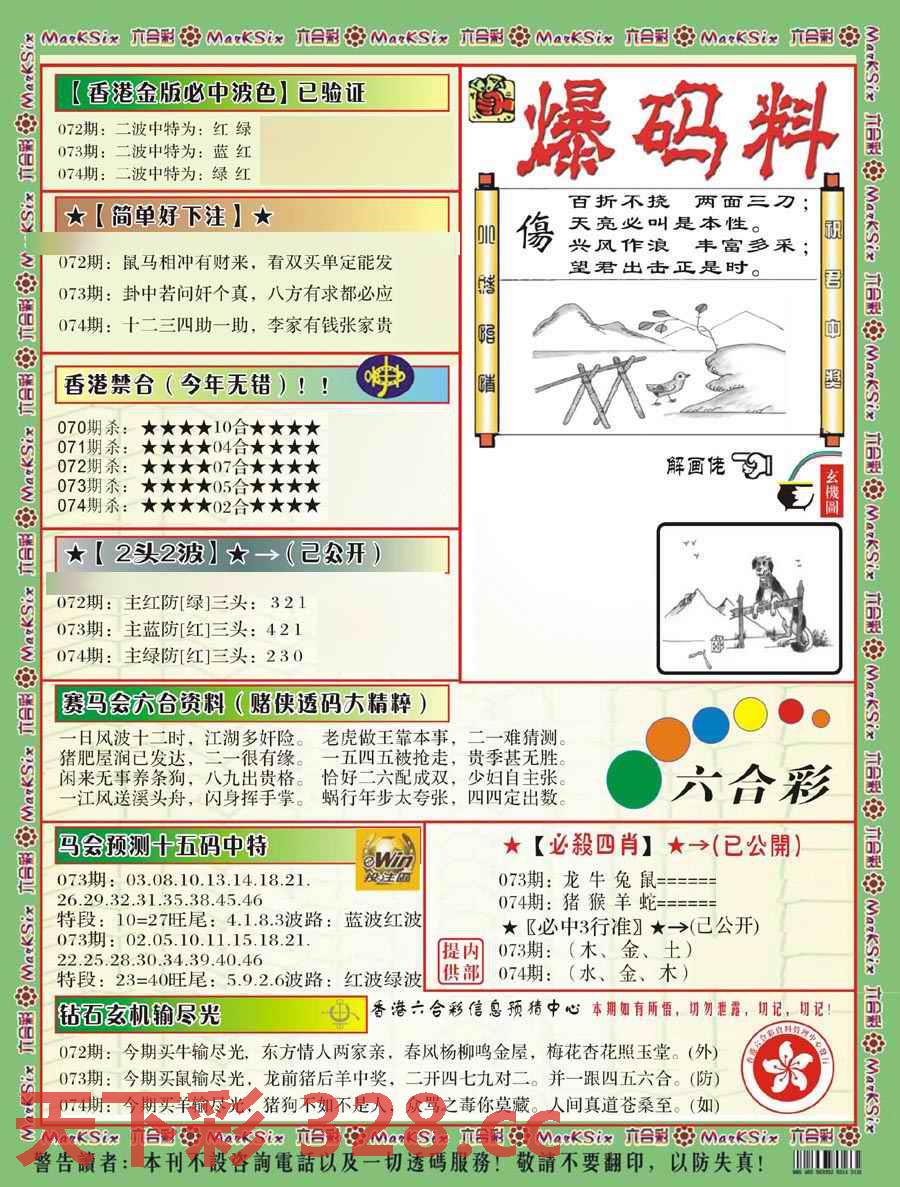 MarKSix 六合彩 MarKSix 六合彩 MarKSix 六合彩 MarKSix 六合彩 MarKSix 六合彩
【香港金版必中波色】已验证
072期：二波中特为：红 绿
073期：二波中特为：蓝 红
074期：二波中特为：绿 红
★【简单好下注】★
072期：鼠马相冲有财来，看双买单定能发
073期：卦中若问奸个真，八方有求都必应
074期：十二三四助一助，李家有钱张家贵
香港禁合（今年无错）！！
070期杀：★★★★10合★★★★
071期杀：★★★★04合★★★★
072期杀：★★★★07合★★★★
073期杀：★★★★05合★★★★
074期杀：★★★★02合★★★★
★【 2头2波】★→(已公开)
072期：主红防[绿]三头：3 2 1
073期：主蓝防[红]三头：4 2 1
074期：主绿防[红]三头：2 3 0
爆码料
傷
百折不挠 两面三刀；
天亮必叫是本性。
兴风作浪 丰富多采；
望君出击正是时。
祝君中奖
解画佬
玄機圖
赛马会六合资料（赌侠透码大精粹）
一日风波十二时，江湖多奸险。 老虎做王靠本事，二一难猜测。
猪肥屋润已发达，二一很有缘。 一五四五被抢走，贵季甚无胜。
闲来无事养条狗，八九出贵格。 恰好二六配成双，少妇自主张。
一江风送溪头舟，闪身挥手掌。 蜗行年步太夸张，四四定出数。
六合彩
马会预测十五码中特
eWin
投注區
073期：03.08.10.13.14.18.21.
26.29.32.31.35.38.45.46
特段：10=27旺尾：4.1.8.3波路：蓝波红波
073期：02.05.10.11.15.18.21.
22.25.28.30.34.39.40.46
特段：23=40旺尾：5.9.2.6波路：红波绿波
★【必殺四肖】★→(已公開)
073期：龙 牛 兔 鼠======
074期：猪 猴 羊 蛇======
★〖必中3行准〗★→(已公开)
073期：（木、金、土）
074期：（水、金、木）
提内
供部
钻石玄机输尽光
香港六合彩信息预猜中心 本期如有所悟，切勿泄露，切记，切记！
072期：今期买牛输尽光，东方情人两家亲，春风杨柳鸣金屋，梅花杏花照玉堂。(外)
073期：今期买鼠输尽光，龙前猪后羊中奖，二开四七九对二。并一跟四五六合。(防)
074期：今期买羊输尽光，猪狗不如不是人，众骂之毒你莫藏。人间真道苍桑至。(如)
天下彩 328.cc
MarKSix 六合彩 MarKSix 六合彩 MarKSix 六合彩 MarKSix 六合彩 MarKSix 六合彩
警告讀者：本刊不設咨詢電話以及一切透碼服務！敬請不要翻印，以防失真！